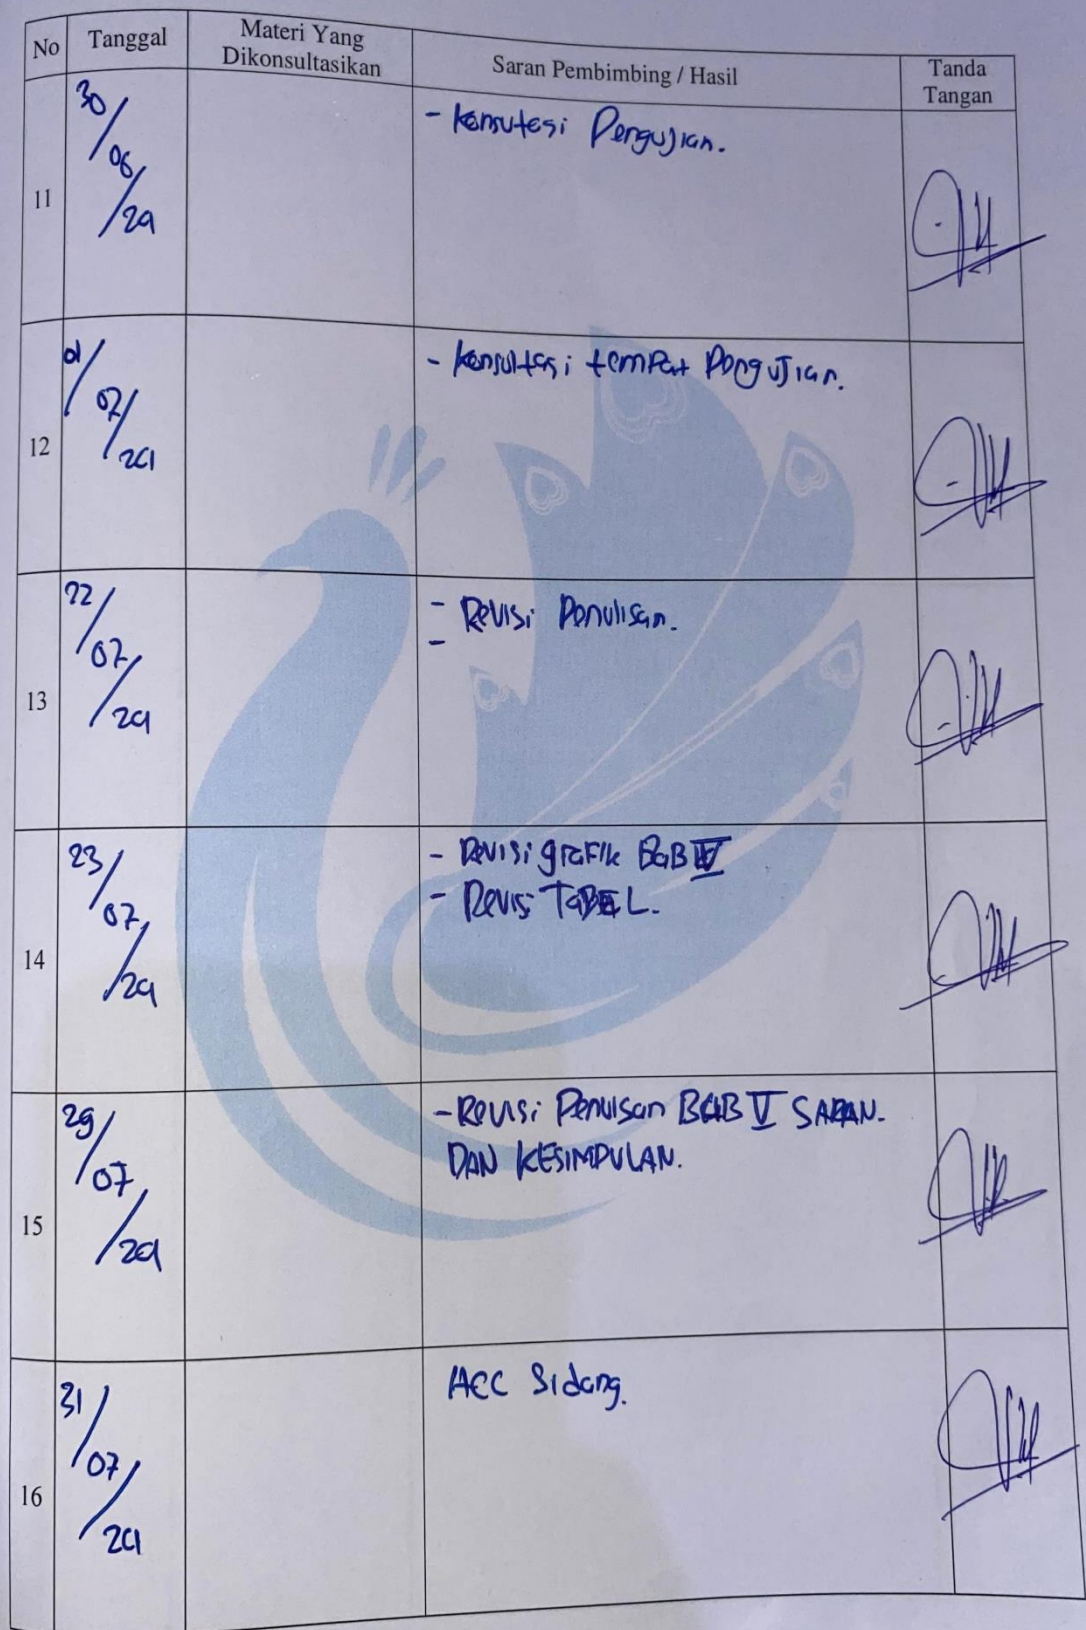 No Tanggal Materi Yang Dikonsultasikan Saran Pembimbing / Hasil Tanda Tangan
11 30/06/24 - Konsutasi Pengujian.
12 01/07/24 - Konsultasi tempat Pengujian.
13 22/07/24 - Revisi Penulisan.
-
14 23/07/24 - Revisi grafik BAB IV
- Revisi TABEL.
15 29/07/24 - Revisi Penulisan BAB V SARAN.
DAN KESIMPULAN.
16 31/07/24 ACC Sidang.